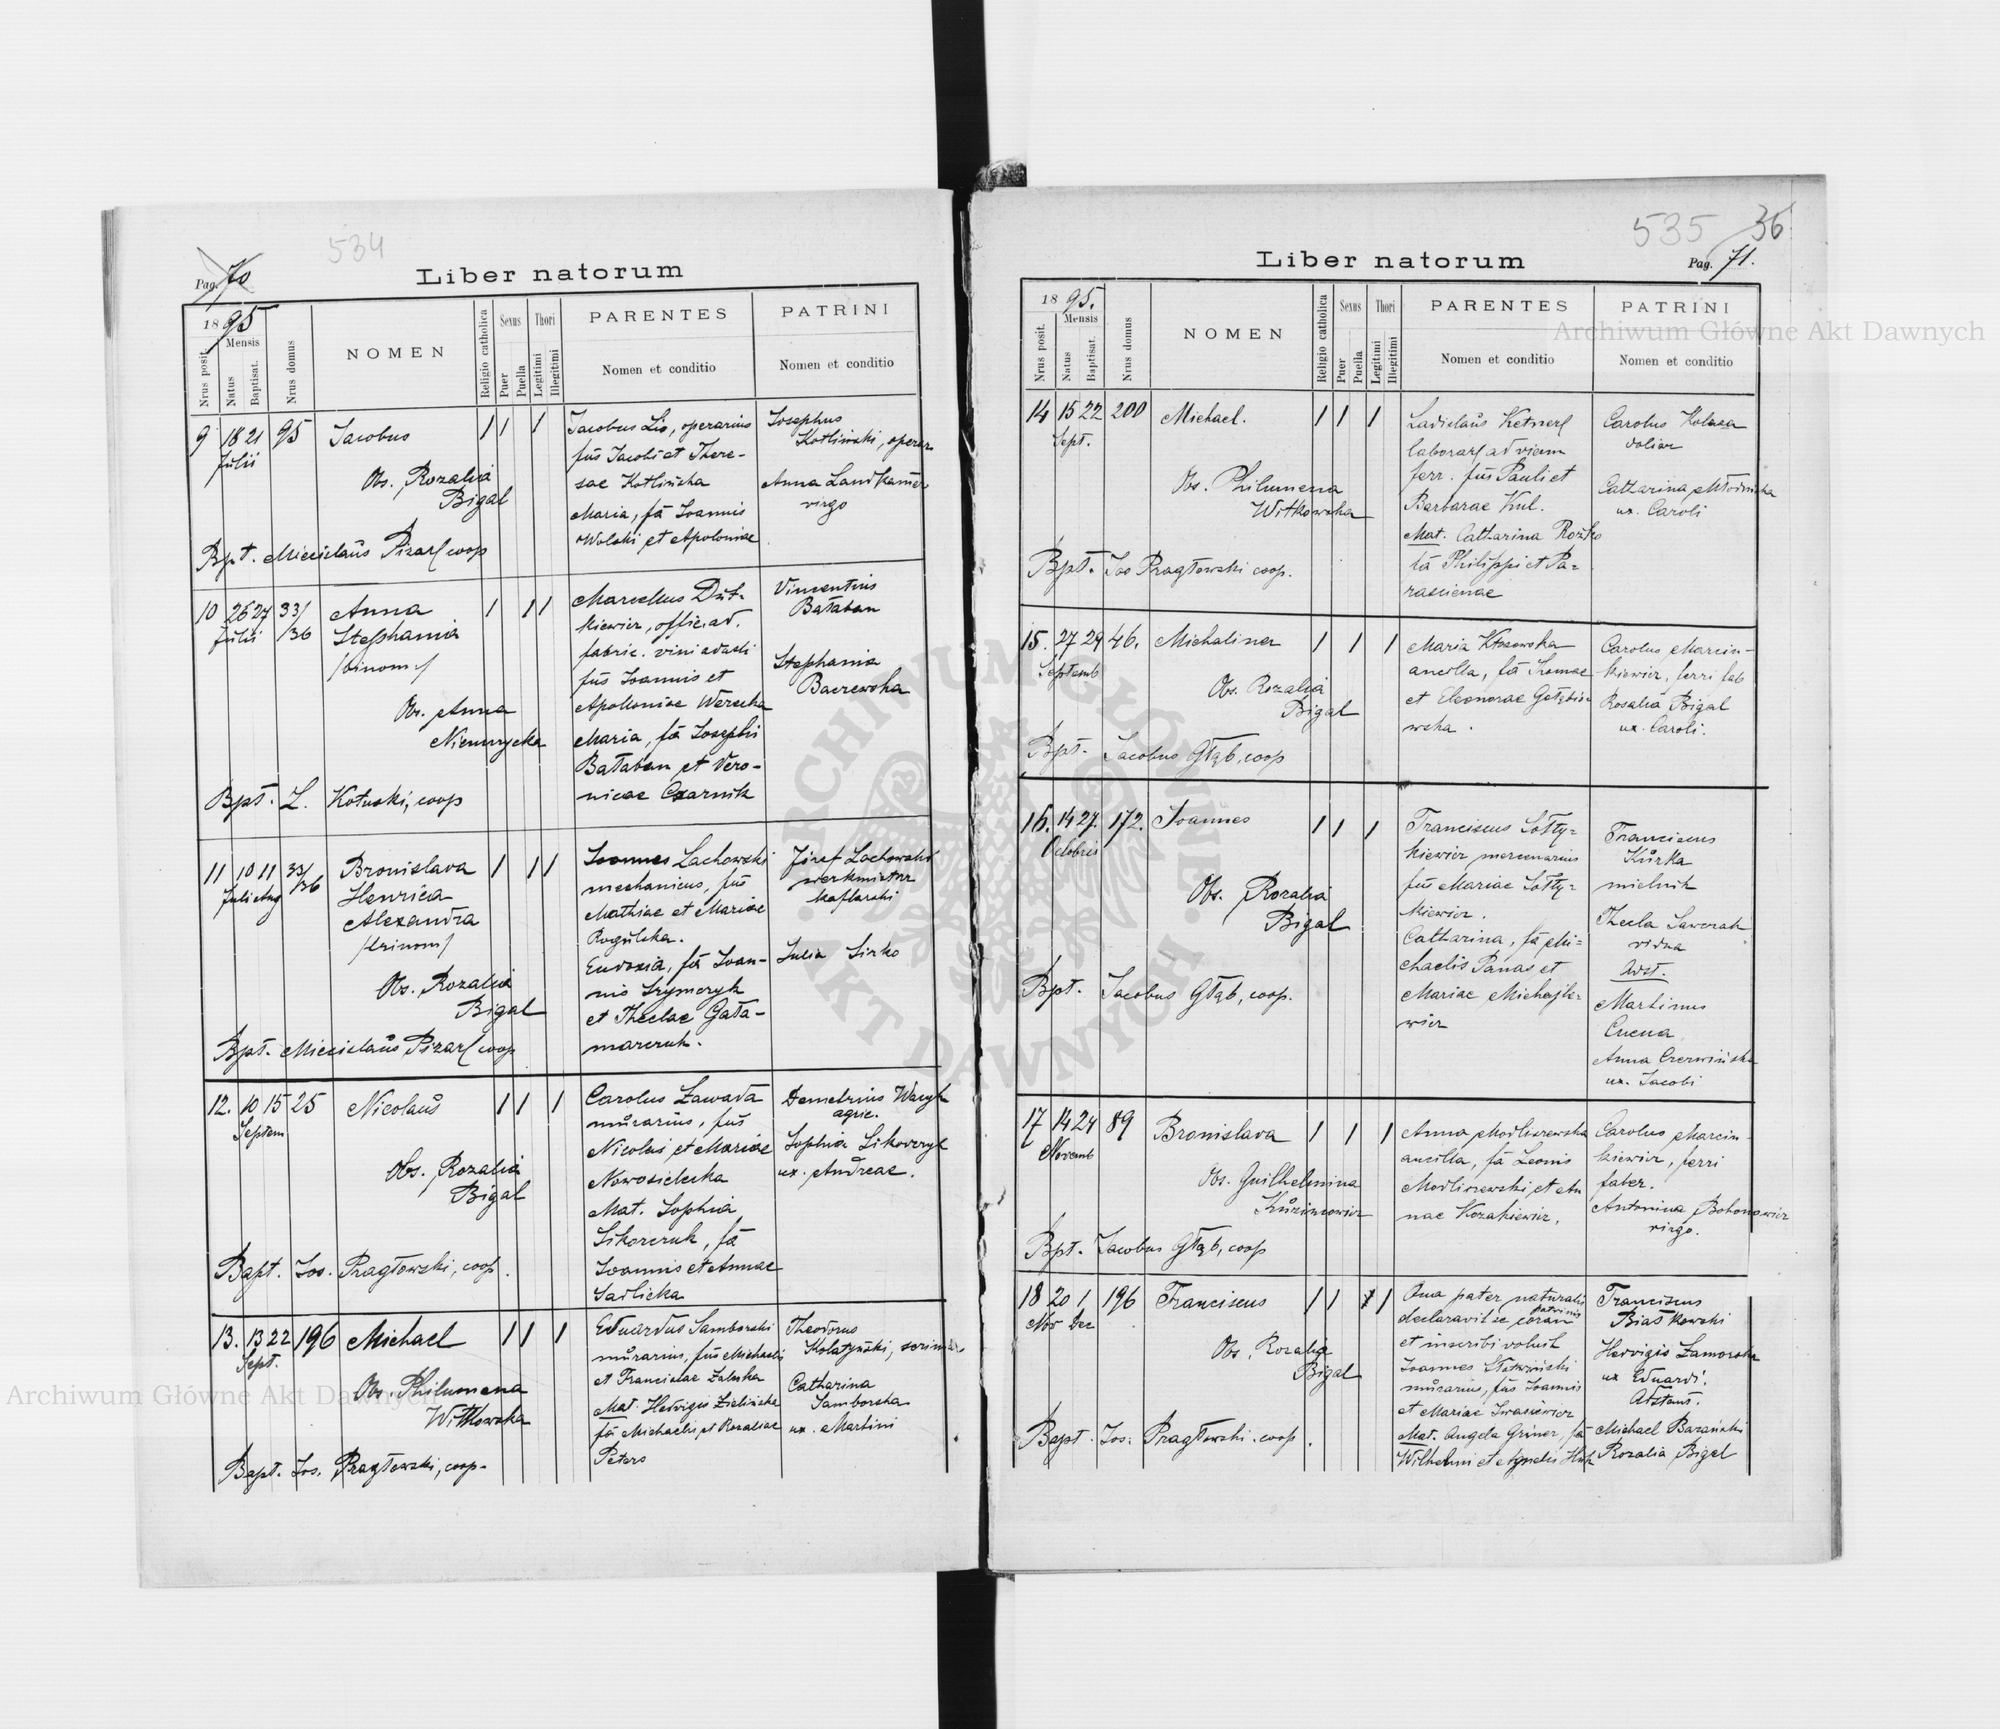 534
Pag. 70
Liber natorum
1895
Nrus posit.
Mensis
Natus
Baptisat.
Nrus domus
NOMEN
Religio catholica
Sexus
Puer
Puella
Thori
Legitimi
Illegitimi
PARENTES
Nomen et conditio
PATRINI
Nomen et conditio
9 18 21 95 Jacobus 1 1 1
Julii
Obs. Rozalia
Bigal
Bpt. Miecislaus Pizar coop
Jacobus Lis, operarius
fus Jacobi et There-
sae Kotlińska
Maria, fa Joannis
Wolski et Apoloniae
Josephus
Kotliński, operar
Anna Landkamer
virgo
10 26 27 33/36 Anna 1 1 1
Julii Stephania
/binom:/
Ob. Anna
Niemirycka
Bpt. L. Kotuski, coop
Marcellus Dut-
kiewicz, offic. ad.
fabric. vini adusti
fus Joannis et
Apolloniae Werecka
Maria, fa Josephi
Bałaban et Vero-
nicae Czarnik
Vincentius
Bałaban
Stephania
Baczewska
11 10 11 33/36 Bronislava 1 1 1
Julii Aug Henrica
Alexandra
/trinom/
Ob. Rozalia
Bigal
Bpt. Miecislaus Pizar coop
Joannes Lachowski
mechanicus, fus
Mathiae et Mariae
Rogulska.
Eudoxia, fa Joan-
nis Szymczyk
et Theclae Gała-
marczuk.
Józef Lachowski
werkmistrz
kaflarski
Julia Sirko
12. 10 15 25 Nicolaus 1 1 1
Septem
Obs. Rozalia
Bigal
Bapt. Jos. Pragłowski, coop.
Carolus Zawada
murarius, fus
Nicolai et Mariae
Nowosielecka
Mat. Sophia
Sikorczuk, fa
Joannis et Annae
Sadlicka
Demetrius Wasyk
agric.
Sophia Sikorczyk
ux. Andreae.
13. 13 22 196 Michael 1 1 1
Sept.
Obs. Philumena
Witkowska
Bapt. Jos. Pragłowski, coop.
Eduardus Samborski
murarius, fus Michaelis
et Franciscae Zaleska
Mat. Hedvigis Zielińska
fa Michaelis et Rozaliae
Peters
Theodorus
Kolatyński,
Catharina
Samborska
ux. Martini
535 36
Liber natorum
Pag. 71.
1895.
Nrus posit.
Mensis
Natus
Baptisat.
Nrus domus
NOMEN
Religio catholica
Sexus
Puer
Puella
Thori
Legitimi
Illegitimi
PARENTES
Nomen et conditio
PATRINI
Nomen et conditio
14 15 22 200 Michael. 1 1 1
Sept.
Obs. Philumena
Witkowska
Bpt. Jos Pragłowski coop.
Ladislaus Ketner
laborar ad viam
ferr. fus Pauli et
Barbarae Kul.
Mat. Catharina Rożko
fa Philippi et Pa-
rascienae
Carolus Kolasa
doliar
Catharina Młodnicka
ux. Caroli
15. 27 29 46. Michalina 1 1 1
Septemb
Obs. Rozalia
Bigal
Bpt. Jacobus Głąb, coop
Maria Kłosowska
ancilla, fa Thomae
et Eleonorae Gołębio-
wska.
Carolus Marcin-
kiewicz, ferri fab
Rosalia Bigal
ux. Caroli.
16. 14 27. 172. Joannes 1 1 1
Octobris
Obs. Rozalia
Bigal
Bpt. Jacobus Głąb, coop.
Franciscus Sołty-
kiewicz mercenarius
fus Mariae Sołty-
kiewicz.
Catharina, fa Mi-
chaelis Panas et
Mariae Michajle-
wicz
Franciscus
Kurka
mielnik
Thecla Saworak
vidua
Adst.
Martinus
Cucua
Anna Czerwińska
ux. Jacobi
17 14 24 89 Bronislava 1 1 1
Novemb
Obs. Guilhelmina
Kuzimowicz
Bpt. Jacobus Głąb, coop
Anna Modliszewska
ancilla, fa Leonis
Modliszewski et An
nae Kozakiewicz.
Carolus Marcin-
kiewicz, ferri
faber.
Antonina Bohonowicz
virgo.
18 20 1 196 Franciscus 1 1 1
Nov Dec
Obs. Rozalia
Bigal
Bapt. Jos. Pragłowski. coop.
Qua pater naturalis
declaravit se coram patrinis
et inscribi voluit
Joannes
murarius, fus Joannis
et Mariae Iwasiewicz
Mat. Angela Griner, fa
Wilhelmi et Agnetis Huk
Franciscus
Białkowski
Hedvigis Zamorska
ux Eduardi.
Adstant.
Michael Barański
Rozalia Bigel
Archiwum Główne Akt Dawnych
Archiwum Główne Akt Dawnych
ARCHIWUM GŁÓWNE AKT DAWNYCH